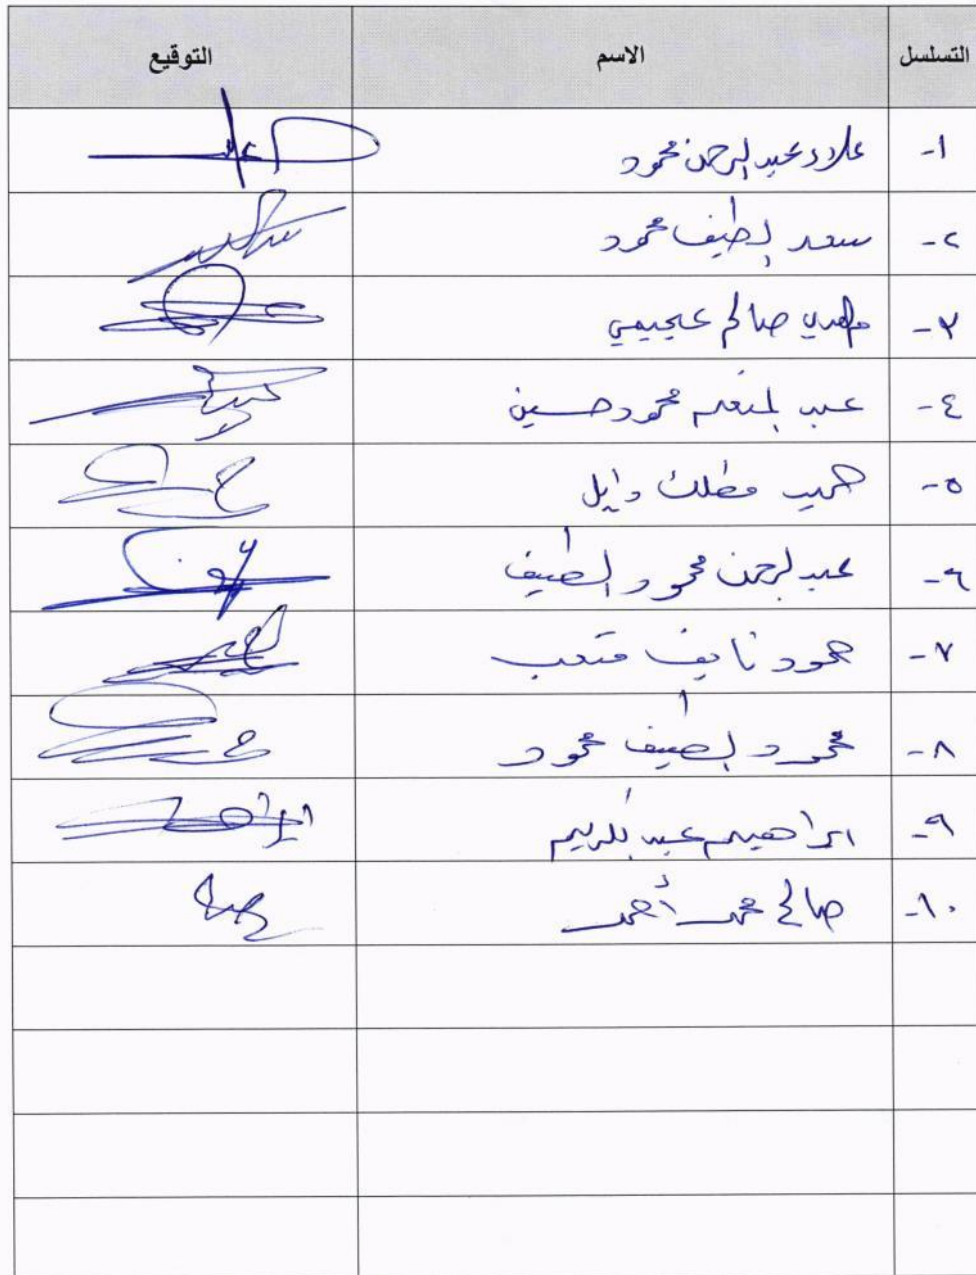 التسلسل الاسم التوقيع
١- علاء عبد الرحمن محمود
٢- سعد لطيف محمود
٣- مهدي صالح عجيمي
٤- عبد المنعم محمود حسين
٥- حميد مطلك وايل
٦- عبد الرحمن محمود لطيف
٧- حمود نايف متعب
٨- محمود لطيف محمود
٩- ابراهيم عبد الكريم
١٠- صالح محمد أحمد